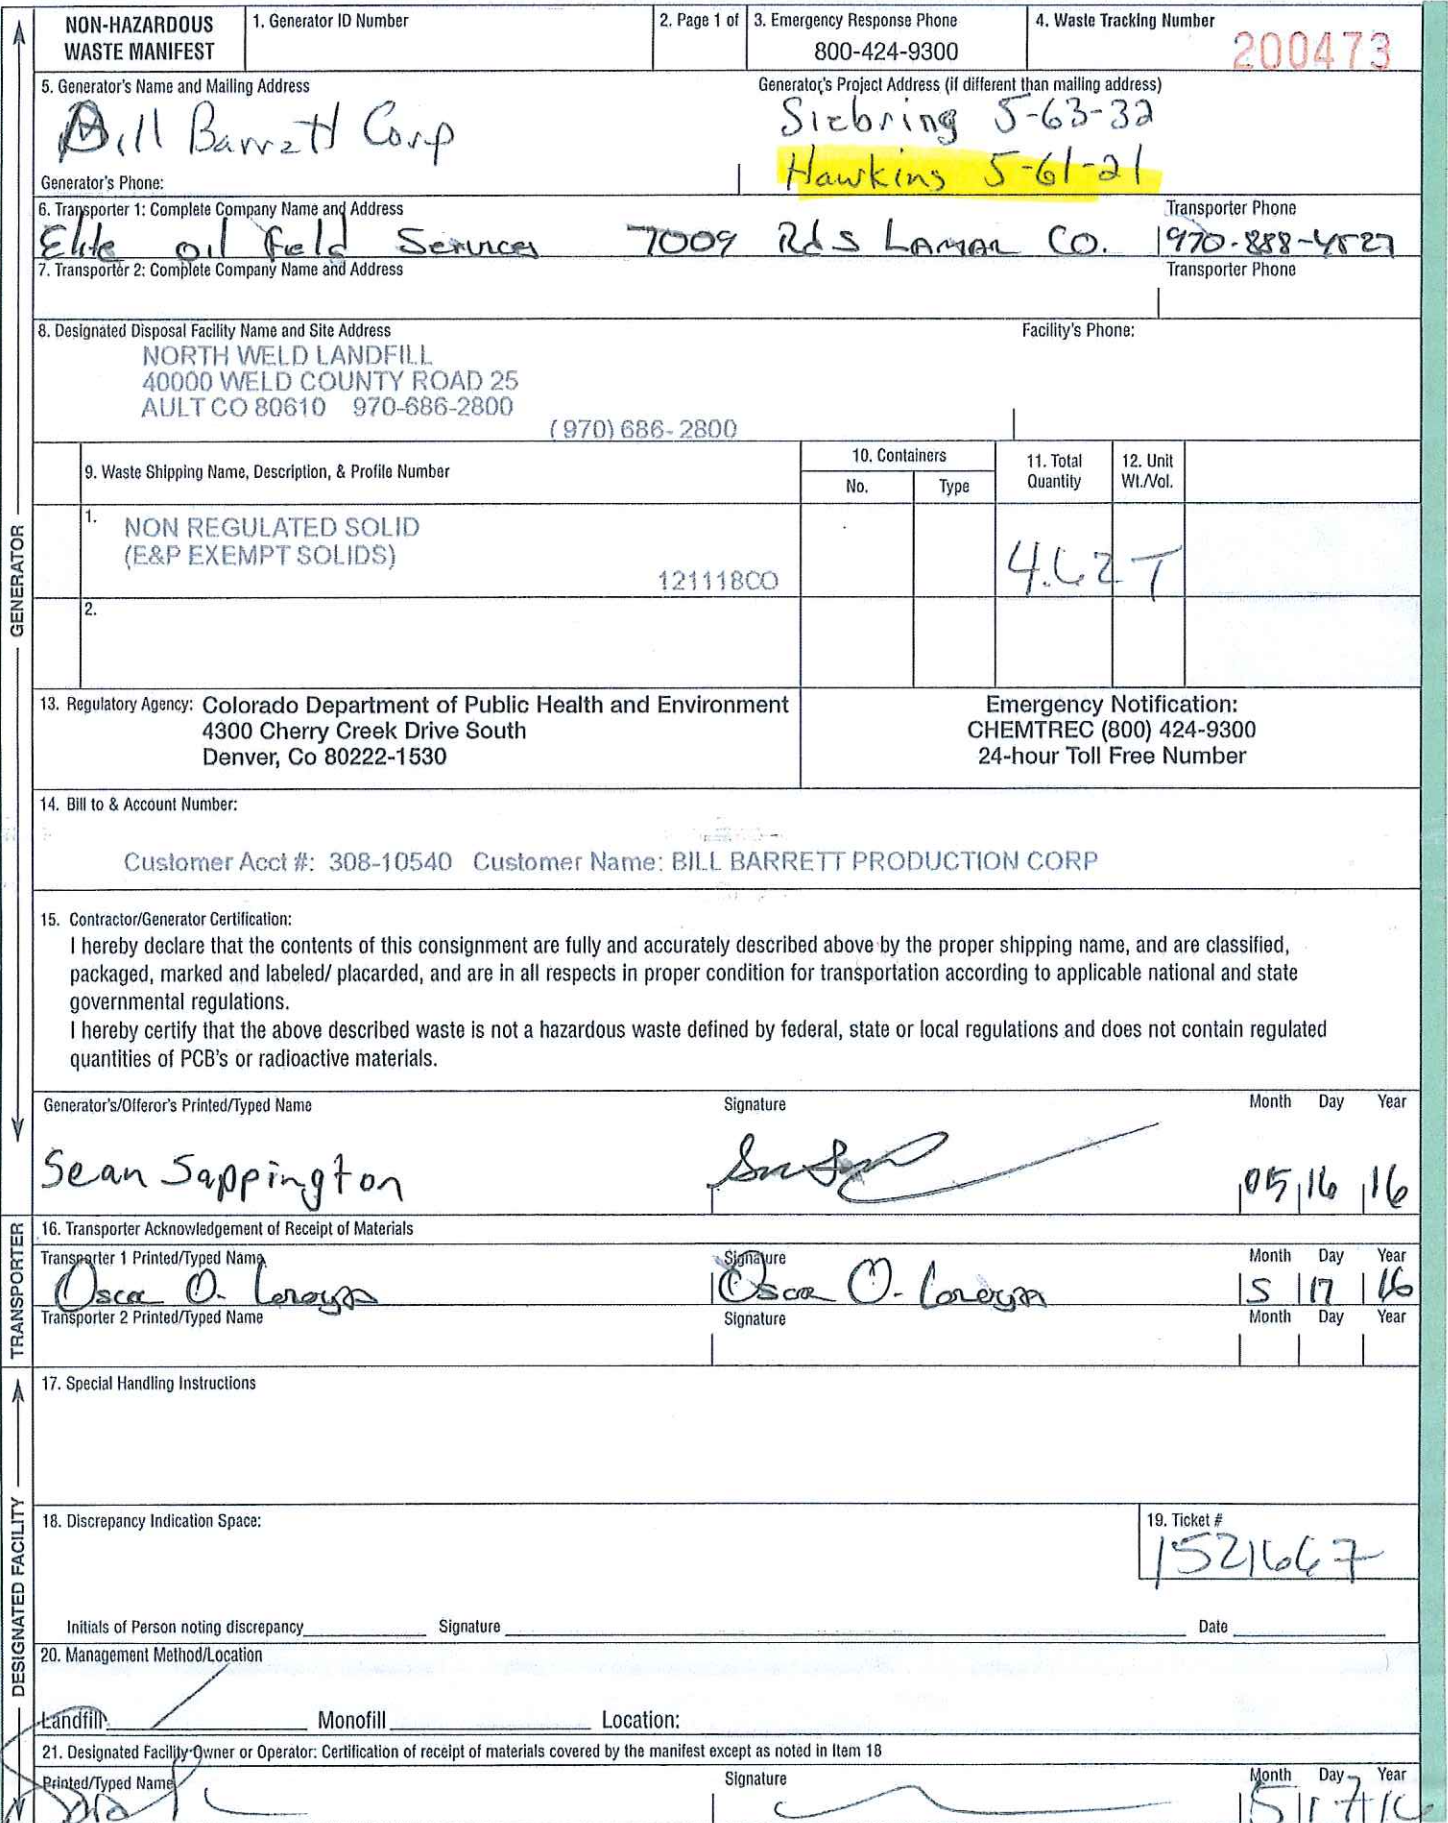 NON-HAZARDOUS
WASTE MANIFEST
1. Generator ID Number
2. Page 1 of
3. Emergency Response Phone
800-424-9300
4. Waste Tracking Number
200473
5. Generator's Name and Mailing Address
Bill Barrett Corp
Generator's Phone:
Generator's Project Address (if different than mailing address)
Siebring 5-63-32
Hawkins 5-61-21
6. Transporter 1: Complete Company Name and Address
Transporter Phone
Elite oil field Services 7009 Rd S LAMAR CO. 970-888-4527
7. Transporter 2: Complete Company Name and Address
Transporter Phone
8. Designated Disposal Facility Name and Site Address
Facility's Phone:
NORTH WELD LANDFILL
40000 WELD COUNTY ROAD 25
AULT CO 80610 970-686-2800
(970) 686-2800
9. Waste Shipping Name, Description, & Profile Number
10. Containers
No.
Type
11. Total
Quantity
12. Unit
Wt./Vol.
1. NON REGULATED SOLID
(E&P EXEMPT SOLIDS)
121118CO
4.62 T
2.
13. Regulatory Agency: Colorado Department of Public Health and Environment
4300 Cherry Creek Drive South
Denver, Co 80222-1530
Emergency Notification:
CHEMTREC (800) 424-9300
24-hour Toll Free Number
14. Bill to & Account Number:
Customer Acct #: 308-10540 Customer Name: BILL BARRETT PRODUCTION CORP
15. Contractor/Generator Certification:
I hereby declare that the contents of this consignment are fully and accurately described above by the proper shipping name, and are classified,
packaged, marked and labeled/ placarded, and are in all respects in proper condition for transportation according to applicable national and state
governmental regulations.
I hereby certify that the above described waste is not a hazardous waste defined by federal, state or local regulations and does not contain regulated
quantities of PCB's or radioactive materials.
Generator's/Offeror's Printed/Typed Name
Signature
Month Day Year
Sean Sappington
05 16 16
16. Transporter Acknowledgement of Receipt of Materials
Transporter 1 Printed/Typed Name
Signature
Month Day Year
Oscar O.
Oscar O.
5 17 16
Transporter 2 Printed/Typed Name
Signature
Month Day Year
17. Special Handling Instructions
18. Discrepancy Indication Space:
19. Ticket #
1521667
Initials of Person noting discrepancy
Signature
Date
20. Management Method/Location
Landfill
Monofill
Location:
21. Designated Facility Owner or Operator: Certification of receipt of materials covered by the manifest except as noted in Item 18
Printed/Typed Name
Signature
Month Day Year
5 17 16
GENERATOR
TRANSPORTER
DESIGNATED FACILITY